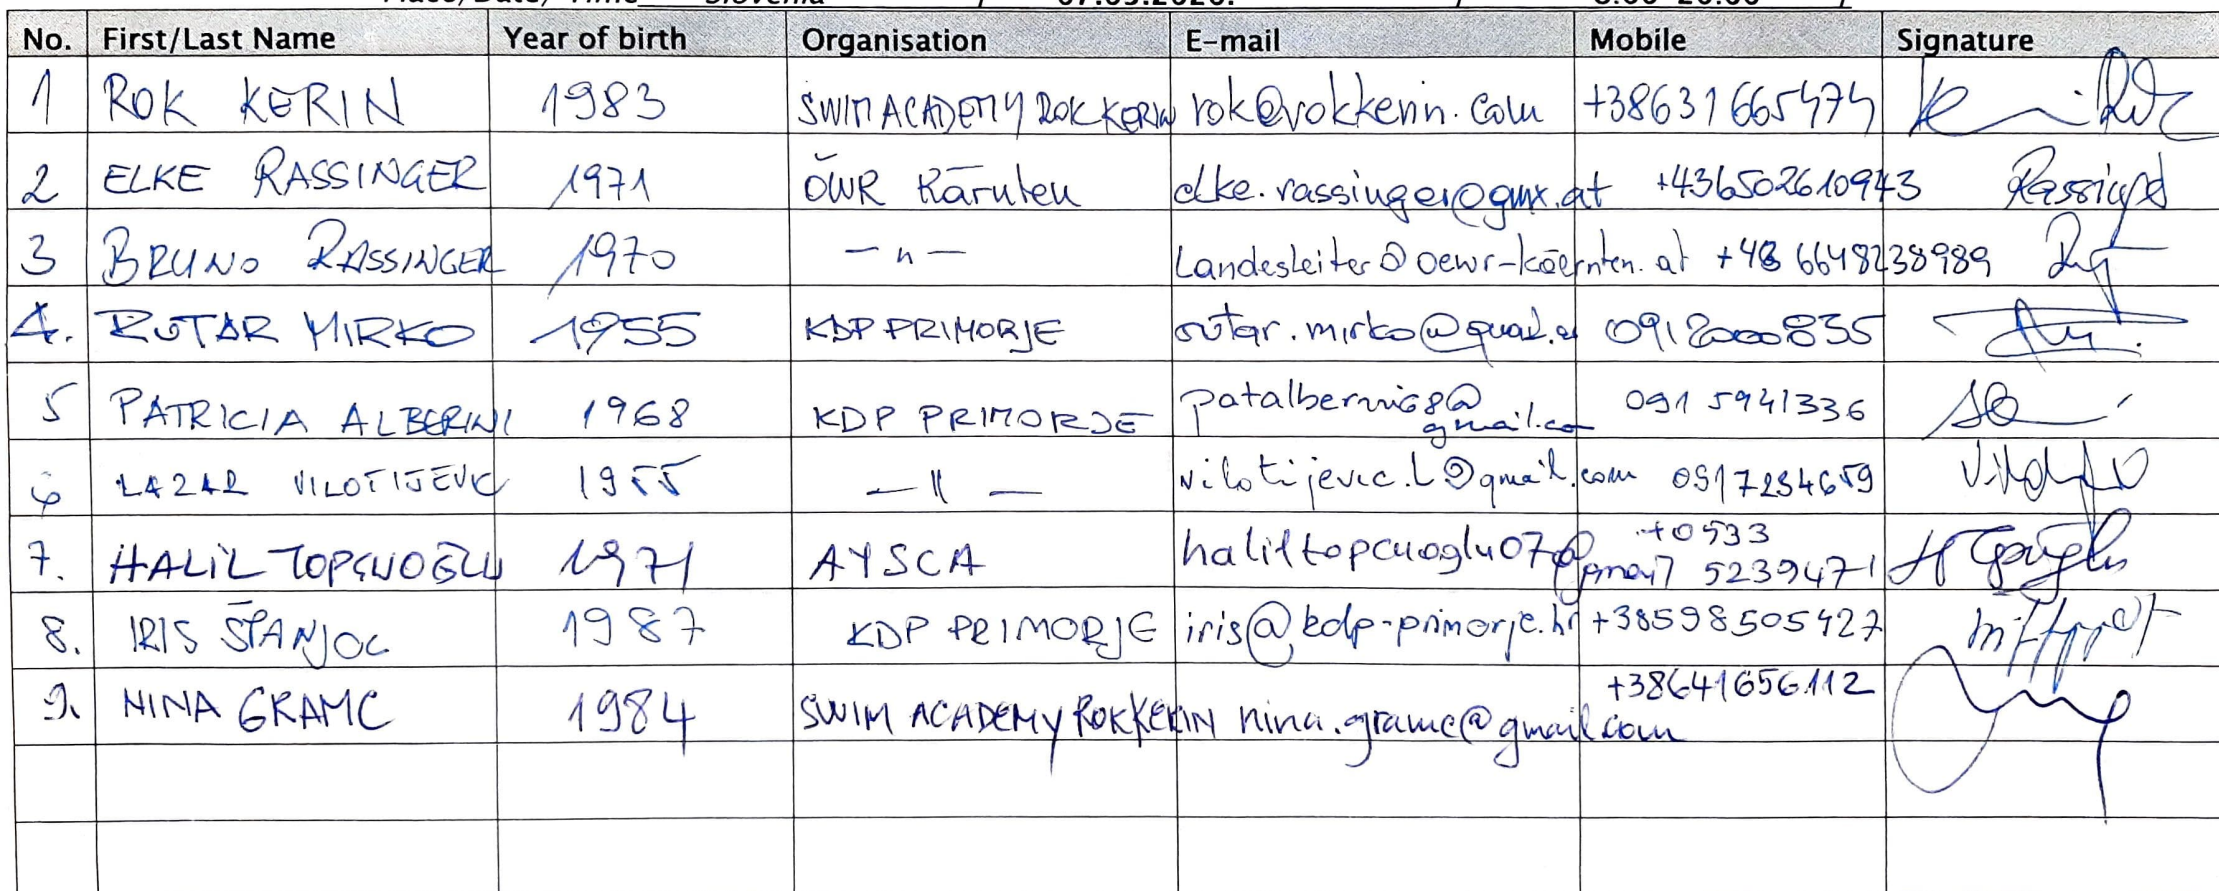 Place/Date/ Time Slovenia / 07.03.2020. / 8:00-20:00 /
No. First/Last Name Year of birth Organisation E-mail Mobile Signature
1 ROK KERIN 1983 SWIM ACADEMY ROK KERIN rok@rokkerin.com +38631665474
2 ELKE RASSINGER 1971 ÖWR Kärnten elke.rassinger@gmx.at +436502610943 Rassinger
3 BRUNO RASSINGER 1970 -"- Landesleiter@oewr-kaernten.at +43 6648238989
4. RUTAR MIRKO 1955 KDP PRIMORJE rutar.mirko@gmail.com 0912000835
5 PATRICIA ALBERINI 1968 KDP PRIMORJE 091 5941336
gmail.com
6 LAZAR VILOTIJEVIC 1955 - || - vilotijevic.L@gmail.com 0917234659
7. HALİL TOPÇUOĞLU 1971 AYSCA haliltopcuoglu07@ +0533
gmail 5239471
8. IRIS ŠTANJOL 1987 KDP PRIMORJE iris@kdp-primorje.hr +38598505427
9. NINA GRAMC 1984 SWIM ACADEMY ROK KERIN nina.gramc@gmail.com +38641656112